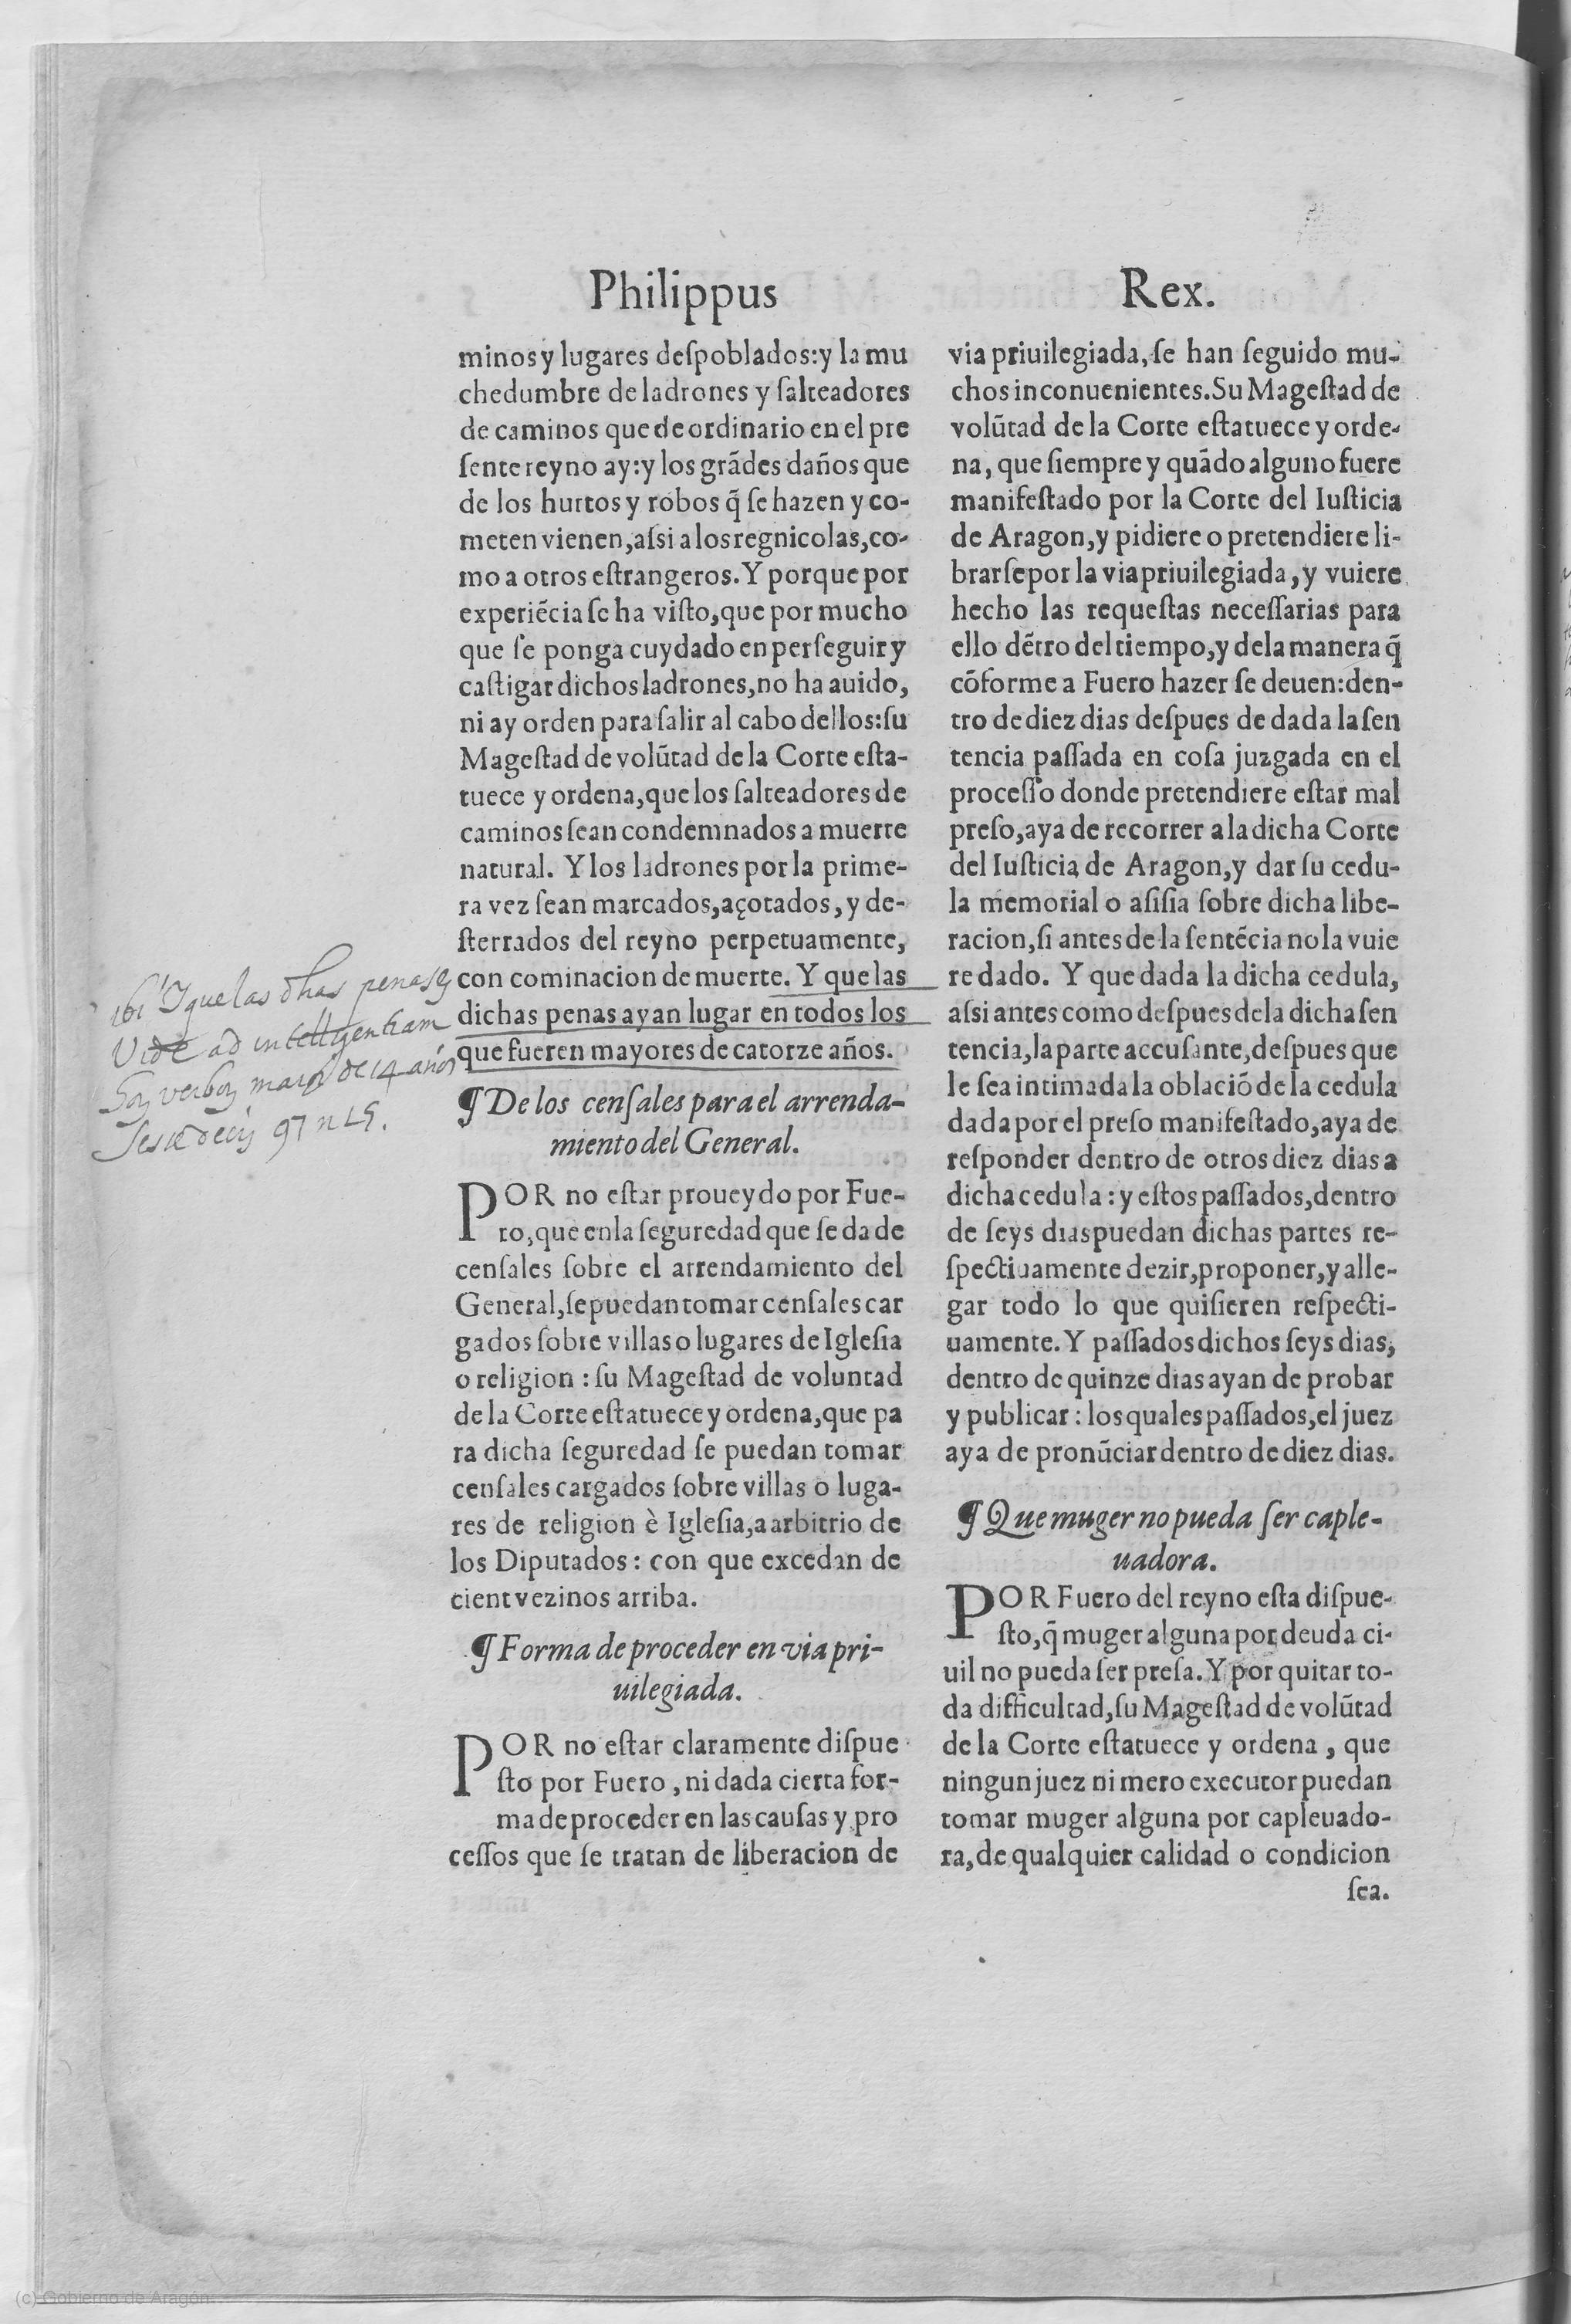 Philippus
minos y lugares deſpoblados:y la mu
chedumbre de ladrones y ſalteadores
de caminos que de ordinario en el pre
ſente reyno ay:y los grãdes daños que
de los hurtos y robos q̃ ſe hazen y co-
meten vienen,aſsi a los regnicolas,co-
mo a otros eſtrangeros. Y porque por
experiẽcia ſe ha viſto,que por mucho
que ſe ponga cuydado en perſeguir y
caſtigar dichos ladrones,no ha auido,
ni ay orden para ſalir al cabo dellos:ſu
Mageſtad de volũtad de la Corte eſta-
tuece y ordena,que los ſalteadores de
caminos ſean condemnados a muerte
natural. Y los ladrones por la prime-
ra vez ſean marcados,açotados,y de-
ſterrados del reyno perpetuamente,
con cominacion de muerte. Y que las
dichas penas ayan lugar en todos los
que fueren mayores de catorze años.
ibi Y que las dhas penas
Vide ad intelligentiam
verbor de 14 años
Sesse decis 97 n
¶ De los cenſales para el arrenda-
miento del General.
POR no eſtar proueydo por Fue-
ro,que en la ſeguredad que ſe da de
cenſales ſobre el arrendamiento del
General,ſe puedan tomar cenſales car
gados ſobre villas o lugares de Igleſia
o religion : ſu Mageſtad de voluntad
de la Corte eſtatuece y ordena,que pa
ra dicha ſeguredad ſe puedan tomar
cenſales cargados ſobre villas o luga-
res de religion è Igleſia,a arbitrio de
los Diputados : con que excedan de
cient vezinos arriba.
¶ Forma de proceder en via pri-
uilegiada.
POR no eſtar claramente diſpue
ſto por Fuero , ni dada cierta for-
ma de proceder en las cauſas y pro
ceſſos que ſe tratan de liberacion de
Rex.
via priuilegiada, ſe han ſeguido mu-
chos inconuenientes. Su Mageſtad de
volũtad de la Corte eſtatuece y orde-
na, que ſiempre y quãdo alguno fuere
manifeſtado por la Corte del Iuſticia
de Aragon,y pidiere o pretendiere li-
brarſe por la via priuilegiada , y vuiere
hecho las requeſtas neceſſarias para
ello dẽtro del tiempo,y de la manera q̃
cõforme a Fuero hazer ſe deuen:den-
tro de diez dias deſpues de dada la ſen
tencia paſſada en coſa juzgada en el
proceſſo donde pretendiere eſtar mal
preſo,aya de recorrer a la dicha Corte
del Iuſticia de Aragon,y dar ſu cedu-
la memorial o aſiſia ſobre dicha libe-
racion,ſi antes de la ſentẽcia no la vuie
re dado. Y que dada la dicha cedula,
aſsi antes como deſpues de la dicha ſen
tencia,la parte accuſante,deſpues que
le ſea intimada la oblaciõ de la cedula
dada por el preſo manifeſtado,aya de
reſponder dentro de otros diez dias a
dicha cedula : y eſtos paſſados,dentro
de ſeys dias puedan dichas partes re-
ſpectiuamente dezir,proponer,y alle-
gar todo lo que quiſieren reſpecti-
uamente. Y paſſados dichos ſeys dias,
dentro de quinze dias ayan de probar
y publicar : los quales paſſados,el juez
aya de pronũciar dentro de diez dias.
¶ Que muger no pueda ſer caple-
uadora.
POR Fuero del reyno eſta diſpue-
ſto,q̃ muger alguna por deuda ci-
uil no pueda ſer preſa. Y por quitar to-
da difficultad,ſu Mageſtad de volũtad
de la Corte eſtatuece y ordena , que
ningun juez ni mero executor puedan
tomar muger alguna por capleuado-
ra,de qualquier calidad o condicion
ſea.
(c) Gobierno de Aragón